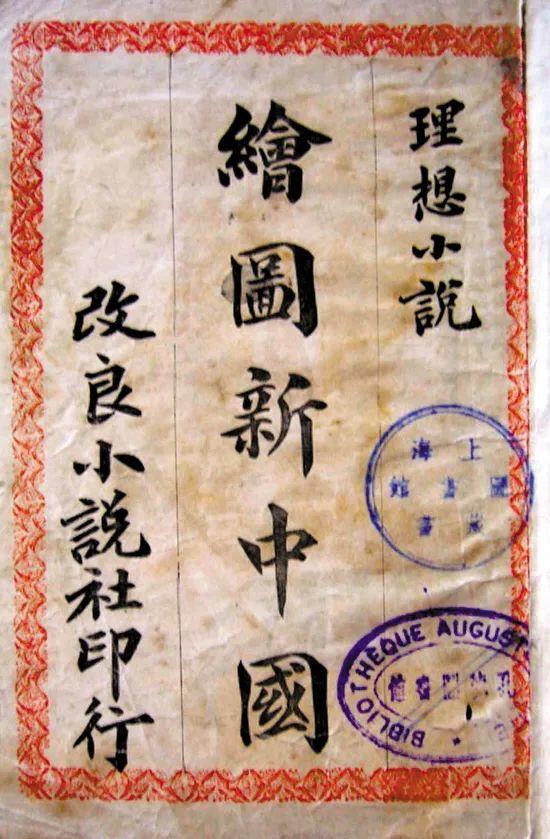 理想小說
繪圖新中國
改良小說社印行
上海
圖書館
藏書
BIBLIOTHEQUE AUGUST